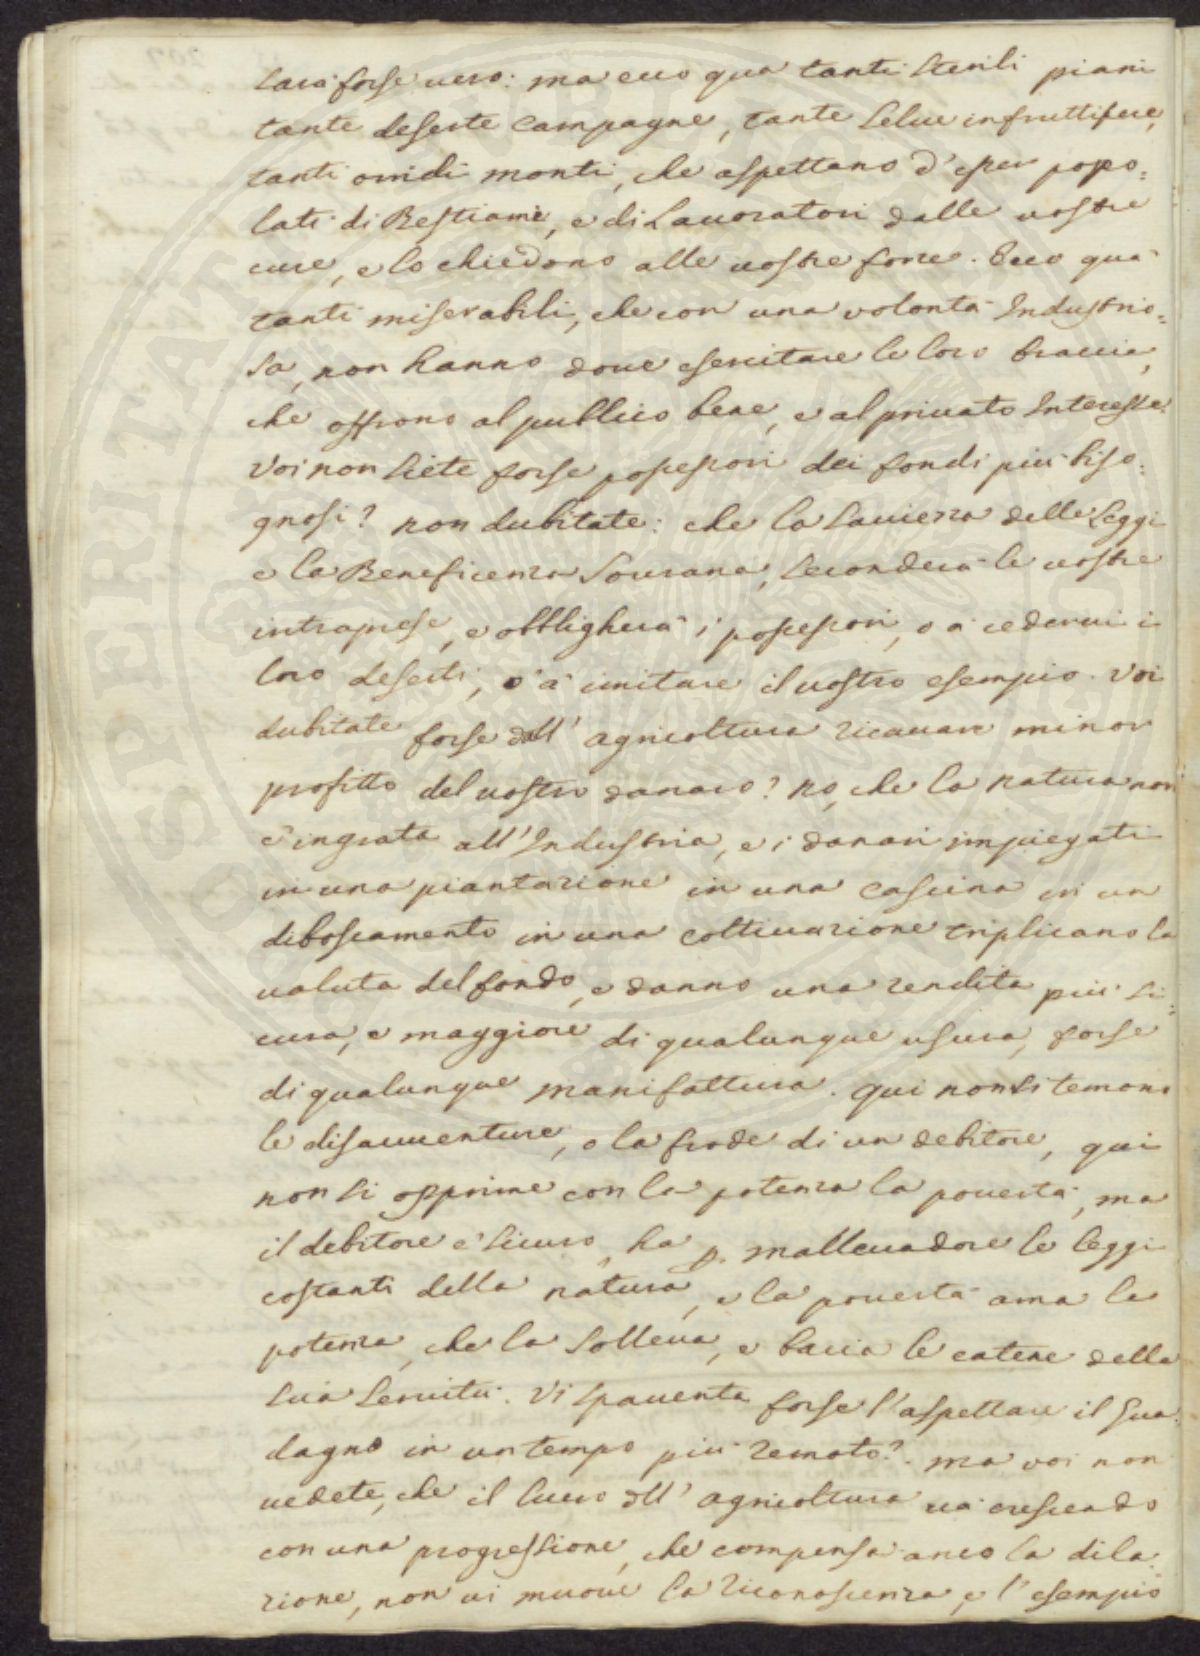 sarà forse vero: ma ecco quà tanti sterili piani
tante deserte campagne, tante selve infruttifere,
tanti orridi monti, che aspettano d'esser popo:
lati di Bestiami, e di Lavoratori dalle vostre
cure, e lo chiedono alle vostre forze. Ecco quà
tanti miserabili, che con una volontà Industrio:
sa, non hanno dove esercitare le loro braccia,
che offrono al publico bene, e al privato Interesse.
Voi non siete forse possessori dei fondi più biso:
gnosi? non dubitate: che la saviezza delle Leggi
e la Beneficenza Sovrana, seconderà le vostre
intraprese, e obbligherà i possessori, o à cedervi i
loro deserti, o à imitare il vostro esempio. Voi
dubitate forse dall' agricoltura ricavare minor
profitto del vostro danaro? no, che la natura non
è ingrata all'Industria, e i danari impiegati
in una piantazione in una cascina in un
diboscamento in una coltivazione triplicano la
valuta del fondo, e danno una rendita più si:
cura, e maggiore di qualunque usura, forse
di qualunque manifattura. qui non si temono
le disavventure, o la frode di un debitore, qui
non si opprime con la potenza la povertà, ma
il debitore è sicuro, ha p. mallevadore le leggi
costanti della natura, e la povertà ama la
potenza, che la solleva, e bacia le catene della
sua servitù. Vi spaventa forse l'aspettare il Gua:
dagno in un tempo più remoto? ma voi non
vedete, che il lucro dll' agricoltura và crescendo
con una progressione, che compensa anco la dila:
zione, non vi muove la riconoscenza, e l'esempio
PROSPERITATI PUBLICAE